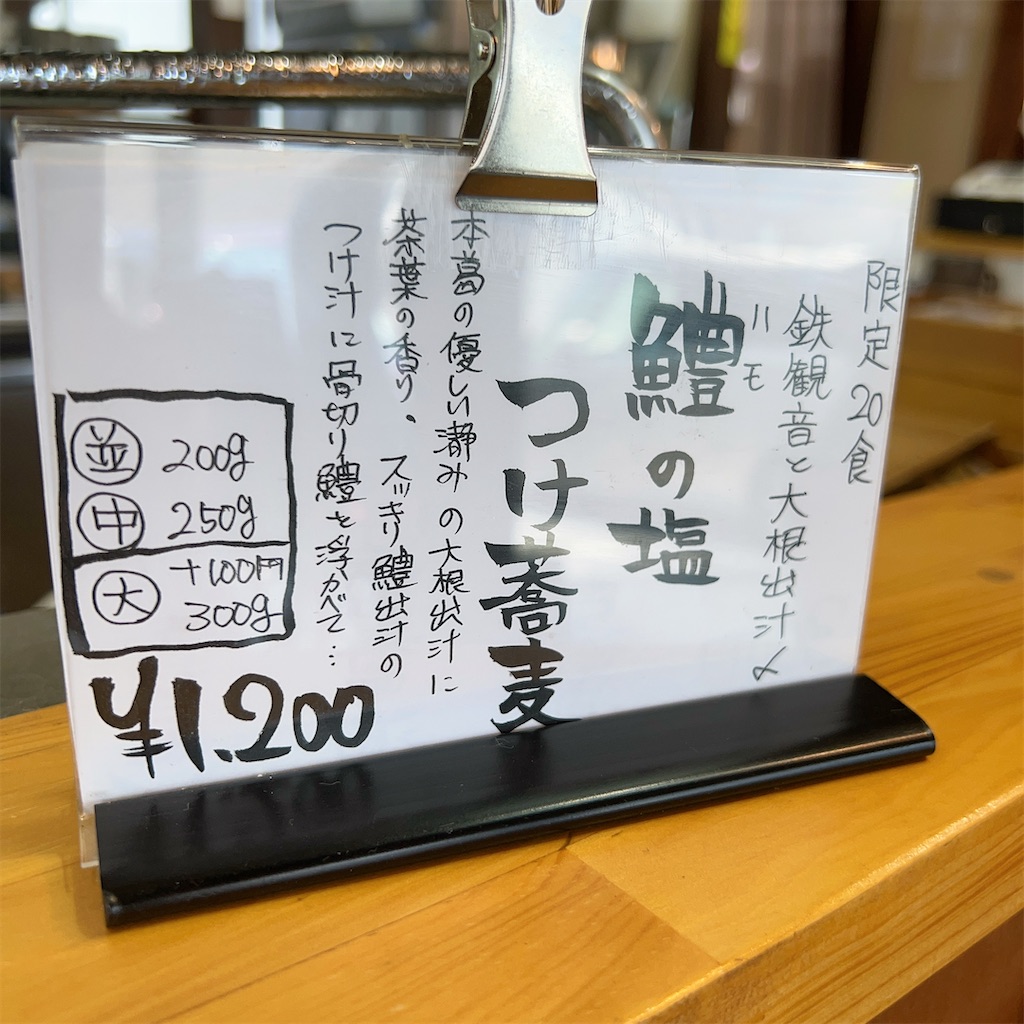 限定20食
鉄観音と大根出汁〆
ハモ
鱧の塩
つけ蕎麦
本葛の優しい瀞みの大根出汁に
茶葉の香り、スッキリ鱧出汁の
つけ汁に骨切り鱧を浮かべて…
並 200g
中 250g
大 +100円
300g
¥1.200